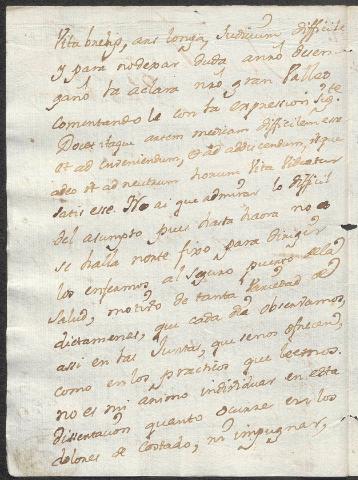 Vita brebis, ars longa, Judicium difficile
y para no dexar duda a nrõ desen
gaño, lo aclara nrõ gran Valles
comentandole con la expresion sig.te
Docet itaque artem medicam difficilem esse
et ad inveniendum, et ad addiscendum, itaque
adeo ut ad neutrum horum Vita Videatur
satis esse. No ai que admirar lo difficil
del asumpto pues hasta haora no
se halla norte fixo para dirigir
los enfermos al seguro puerto de la
salud, motivo de tanta Variedad de
dictamenes, que cada dia observamos,
asi en las Juntas, que se nos ofrecen,
como en los practicos que leemos.
no es mi animo individuar en esta
dissertacion quanto ocurre en los
dolores de Costado, ni impugnar,